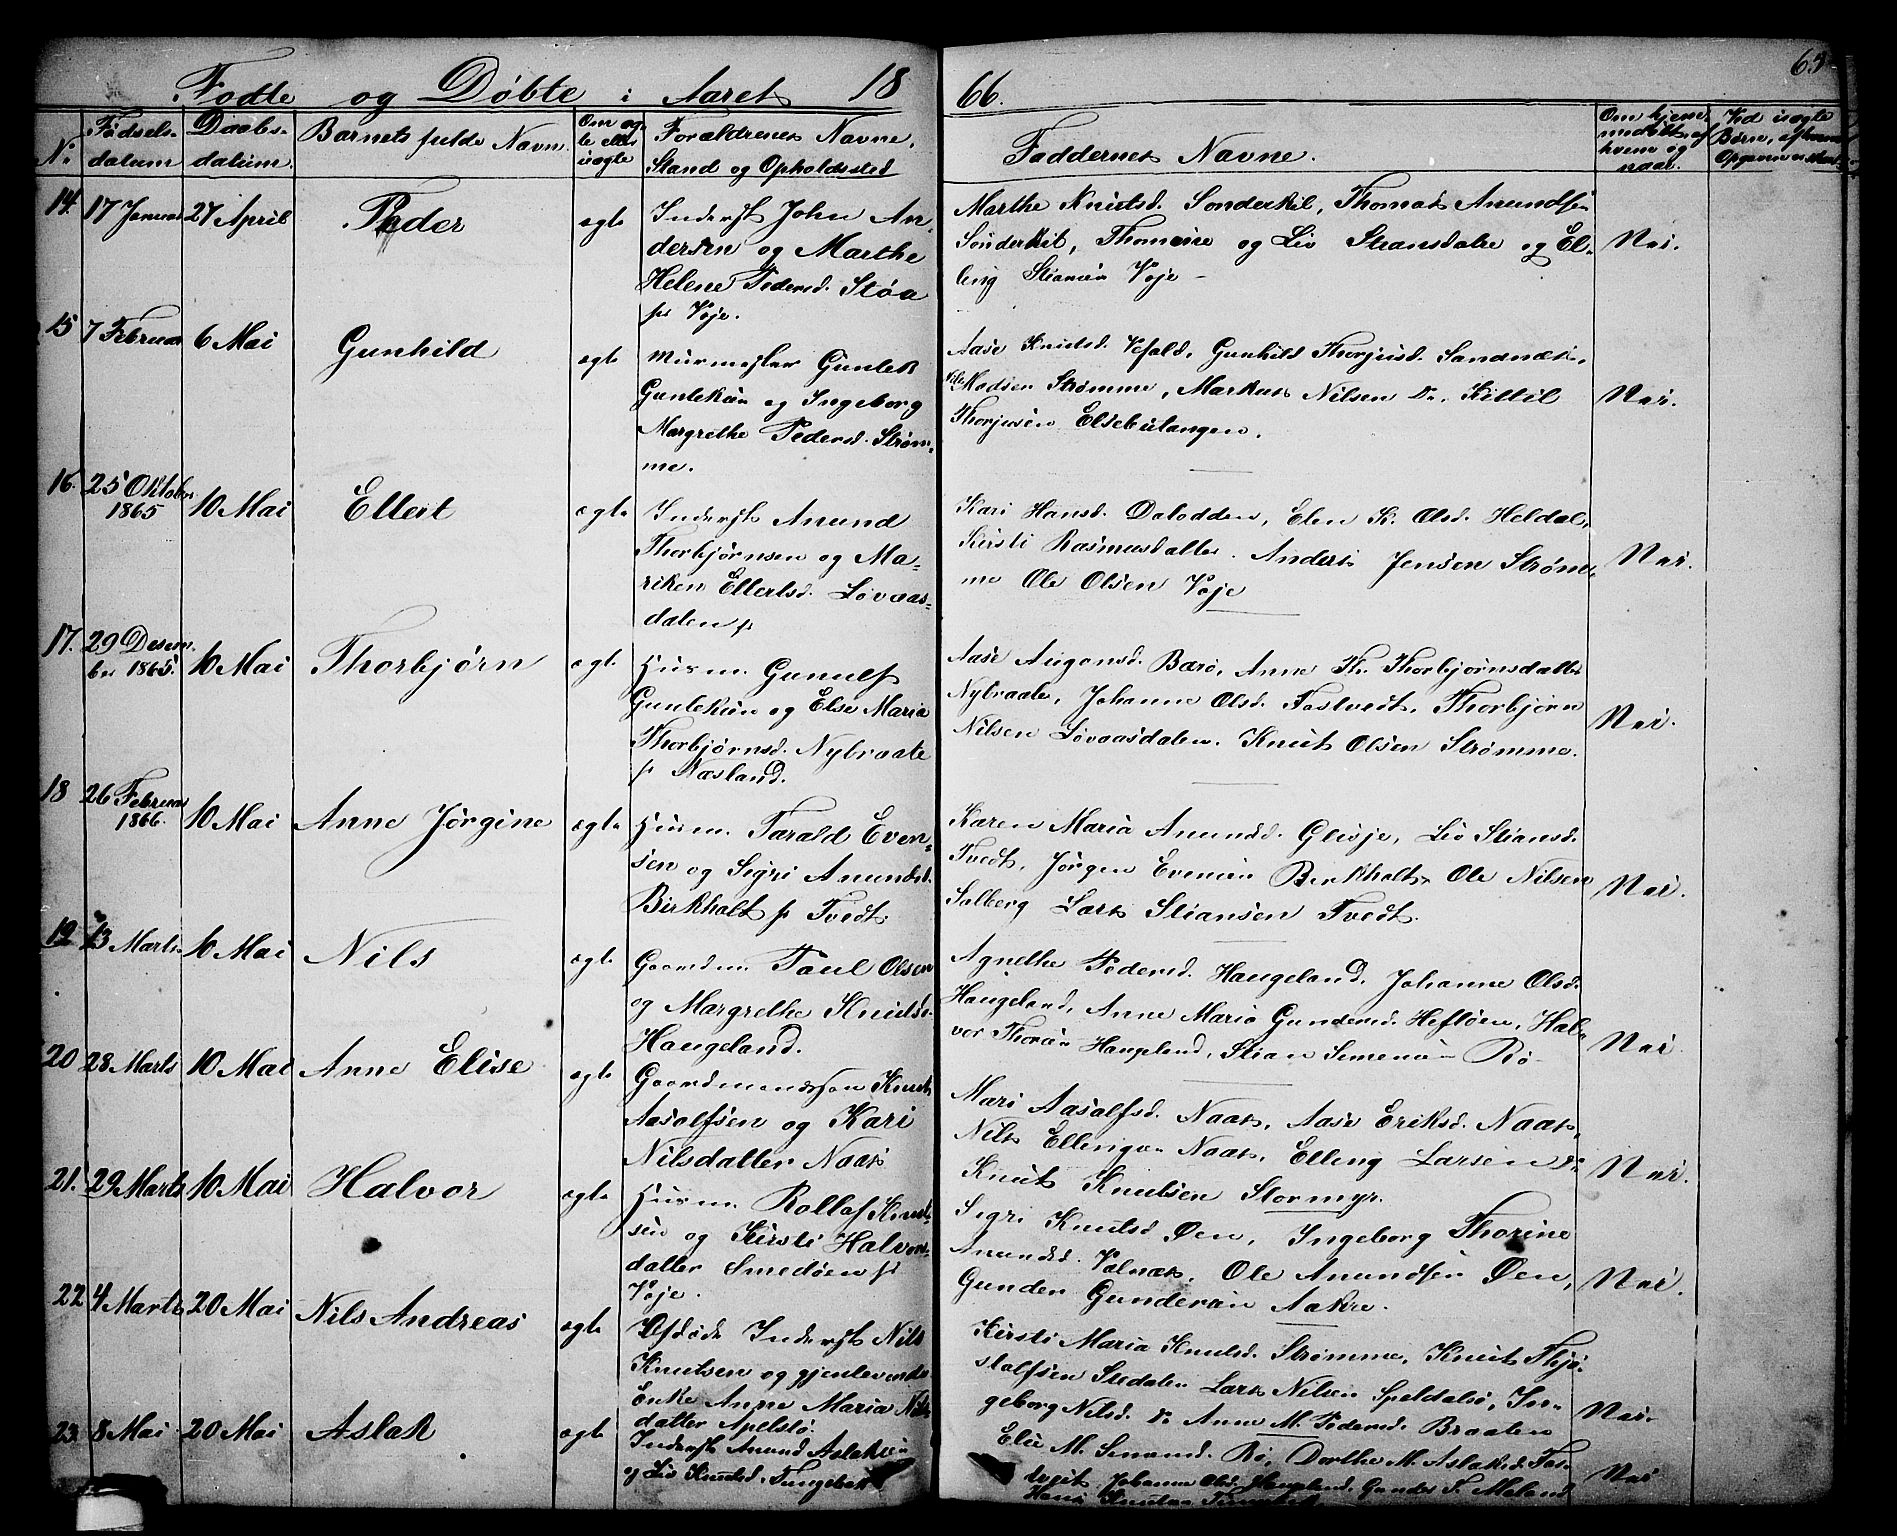 65
Fødte og Døbte i Aaret 18 66.
No
Fødsels-
datum
Daabs-
datum.
Barnets fulde Navn.
Om æg-
te eller
uægte
Forældrenes Navne,
Stand og Opholdssted
Faddernes Navne.
Om hjemme-
naar.
Ved uægte
Børn,
14. 17 Januar 27 April Peder ægte
Inderst John An-
dersen og Marthe
Helene Pedersd. Støa
p. Voje.
Marthe Knutsd. Sonderkil, Thomas Anunds.
Sonderkil, Thomine og Liv Stransdalen og El-
ling Stiansen Voje
Nei.
15 7 Februar 6 Mai Gunhild ægte
Murmester Gunlek
Gunleksen og Ingeborg
Margrethe Pedersd. Strøm-
me.
Aase Knutsd. Vefald, Gunhild Thorjusd. Sandnæs,
Nils Madsen Strømme, Markus Nilsen Do, Kittil
Thorjusen Elsebutangen.
Nei.
16. 25 Oktober
1865 10 Mai Ellert ægte
Inderst Anund
Thorbjørnsen og Ma-
riken Ellertsd. Løvaas-
dalen p
Kari Hansd. Dalodden, Elen K. Olsd. Heldal,
Kirsti Rasmusdatter. Anders Jensen Strøm-
me Ole Olsen Voje
Nei.
17. 29 Desem-
ber 1865. 10 Mai Thorbjørn ægte
Husm. Gunulf
Gunleksen og Else Maria
Thorbjørnsd. Nybraate
p. Næsland.
Aase Augonsd. Barø, Anne Th. Thorbjørnsdatter
Nybraate, Johanne Olsd. Fostvedt, Thorbjørn
Nilsen Løvaasdalen. Knut Olsen Strømme.
Nei.
18 26 Februar
1866. 10 Mai Anne Jørgine ægte
Husm. Tarald Even-
sen og Sigri Anundsd.
Birkholt p. Tvedt.
Karen Maria Anundsd. Glisje, Liv Stiansd.
Tvedt, Jørgen Evensen Berkholt. Ole Nilsen
Solberg Lars Stiansen Tvedt.
Nei.
19 13 Marts 10 Mai Nils ægte
Gaardm. Poul Olsen
og Margrethe Knutsd.
Haugeland.
Agnethe Pedersd. Haugeland, Johanne Olsd.
Haugeland, Anne Maria Gundersd. Hefteen, Hal-
vor Thorsen Haugeland, Stian Simensen Bø
Nei.
20 28 Marts 10 Mai Anne Elise ægte
Gaardmandssøn Knut
Aasolfsen og Kari
Nilsdatter Naas
Mari Aasolfsd. Naas, Aase Eriksd. Naas,
Nils Ellingsen Naas, Elling Larsen Do
Knut Knutsen Stormyr.
Nei.
21. 29 Marts 10 Mai Halvor ægte
Husm. Rollof Knut-
sen og Kirsti Halvors-
datter Smedøen p.
Voje.
Sigri Knutsd Øen, Ingeborg Thorine
Anundsd. Valnæs. Ole Anundsen Øen,
Gunder Gundersen Aakre.
Nei.
22 4 Marts 20 Mai Nils Andreas ægte
Afdøde Inderst Nils
Knutsen og gjenlevende
Enke Anne Maria Nils-
datter Apelstø.
Kirsti Maria Knutsd. Strømme, Knut Thjø-
stolfsen Stedalen Lars Nilsen Speldalsø, In-
geborg Nilsd. Do Anne M. Pedersd. Braaten
Nei.
23. 8 Mai 20 Mai Aslak ægte
Inderst Anund Aslaksen
og Liv Knutsd. Tungebæk
Elie M. Simonsd. Bø, Dorthe M. Aslaksd. Fos-
tveit Johanne Olsd. Haugeland, Gunder T. Meland
Hans Knutsen
Nei